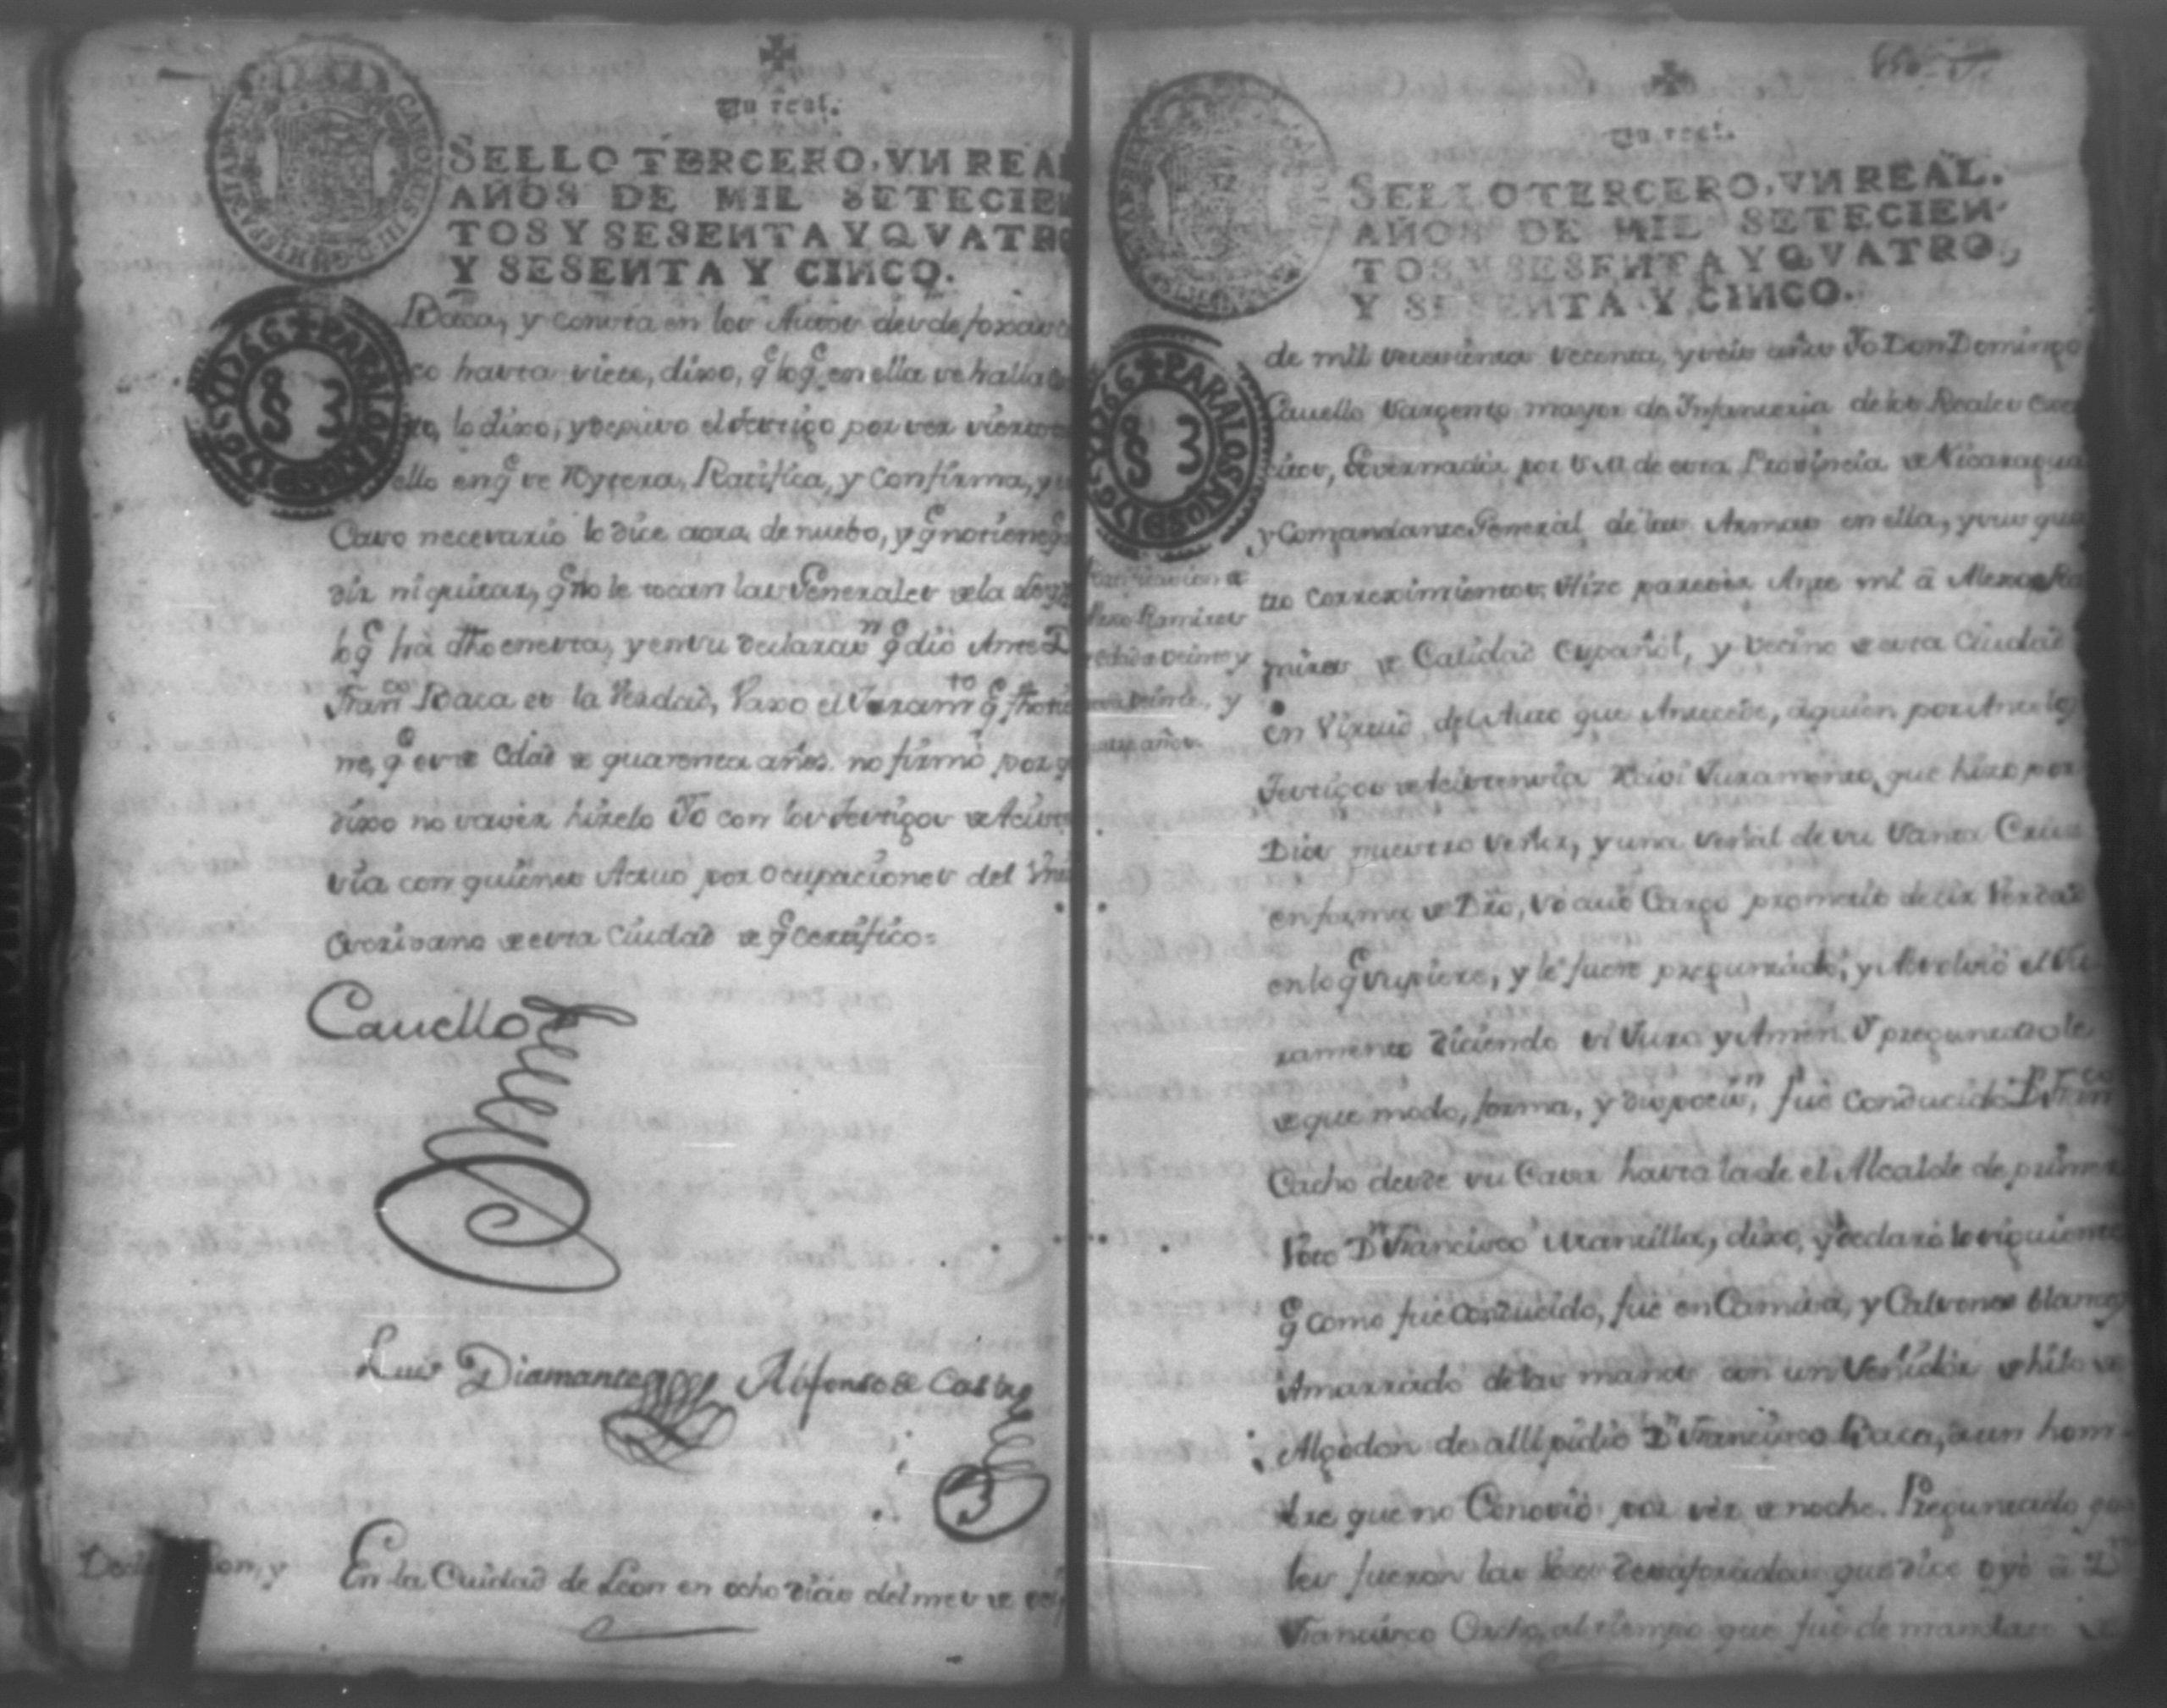 Un real.
SELLO TERCERO, VN REA
AÑOS DE MIL SETECIEN
TOS Y SESENTA Y QVATRO
Y SESENTA Y CINCO.
CAROLUS III D G HISPANIAR REX
PARA LOS AÑOS DE 1765 Y 1766
§ 3
Baca, y consta en los Autos desde foxas
co hasta siete, dixo, q̃ lo q̃ en ella se halla
lo dixo, y depuso el testigo por ser cierto
ello en q̃ se Rytera, Ratifica, y Confirma, y
Caso necesario lo dice aora de nuebo, y q̃ no tiene q̃
dir ni quitar, q̃ no le tocan las Generales de la Ley
lo q̃ ha dho en esta, y en su declaraⁿ q̃ dió Ante D
Franco Baca es la Verdad, baxo el Juramto q̃ fho tie
ne, q̃ es de Edad de quarenta años. no firmó por q
dixo no saver hizelo Yo con los testigos de Asisten
sia con quienes Actuo por ocupaciones del
Escrivano de esta Ciudad de q̃ certifico=
Cauello
Luis Diamante Alfonso de Castro
Declaracion, y
En la Ciudad de Leon en ocho dias del mes de
Un real.
SELLO TERCERO, VN REAL.
AÑOS DE MIL SETECIEN
TOS Y SESENTA Y QVATRO,
Y SESENTA Y CINCO.
PARA LOS AÑOS DE 1765 Y 1766
§ 3
de mil setecientos secenta, y seis años Yo Don Domingo
Cauello Sargento mayor de Infanteria de los Reales Exer
citos, Governador por S M de esta Provincia de Nicaragua
y Comandante General de las Armas en ella, y sus qua
tro Correximientos. Hize pareser Ante mi â Alexo Ra
mires de Calidad Español, y Vecino de esta Ciudad
en Virtud del Auto que Antecede, a quien por Ante los
Testigos de Asistencia Recivi Juramento, que hizo por
Dios nuestro Señor, y una señal de su Santa Cruz
en forma de Dro, so cuio Cargo prometió decir Verdad
en lo q̃ supiere, y le fuere preguntado, y Absolvió el Ju
ramento diciendo si Juro y Amen. Y preguntadole
de que modo, forma, y disposisⁿ, fue conducido Dⁿ Franco
Cacho desde su Casa hasta la de el Alcalde de primer
Voto Dⁿ Francisco Mansilla, dixo, y declaró lo siguiente
q̃ como fue Conducido, fue en Camisa, y Calsones blancos
Amarrado de las manos con un Señidor de hilo de
Algodon de alli pidió Dⁿ Francisco Baca, a un hom-
bre que no Conosió por ser de noche. Preguntado qua
les fueron las Voces desaforadas que dice oyó â Dⁿ
Francisco Cacho, al tiempo que fue de mandato
Ramires
de veinte y
años.